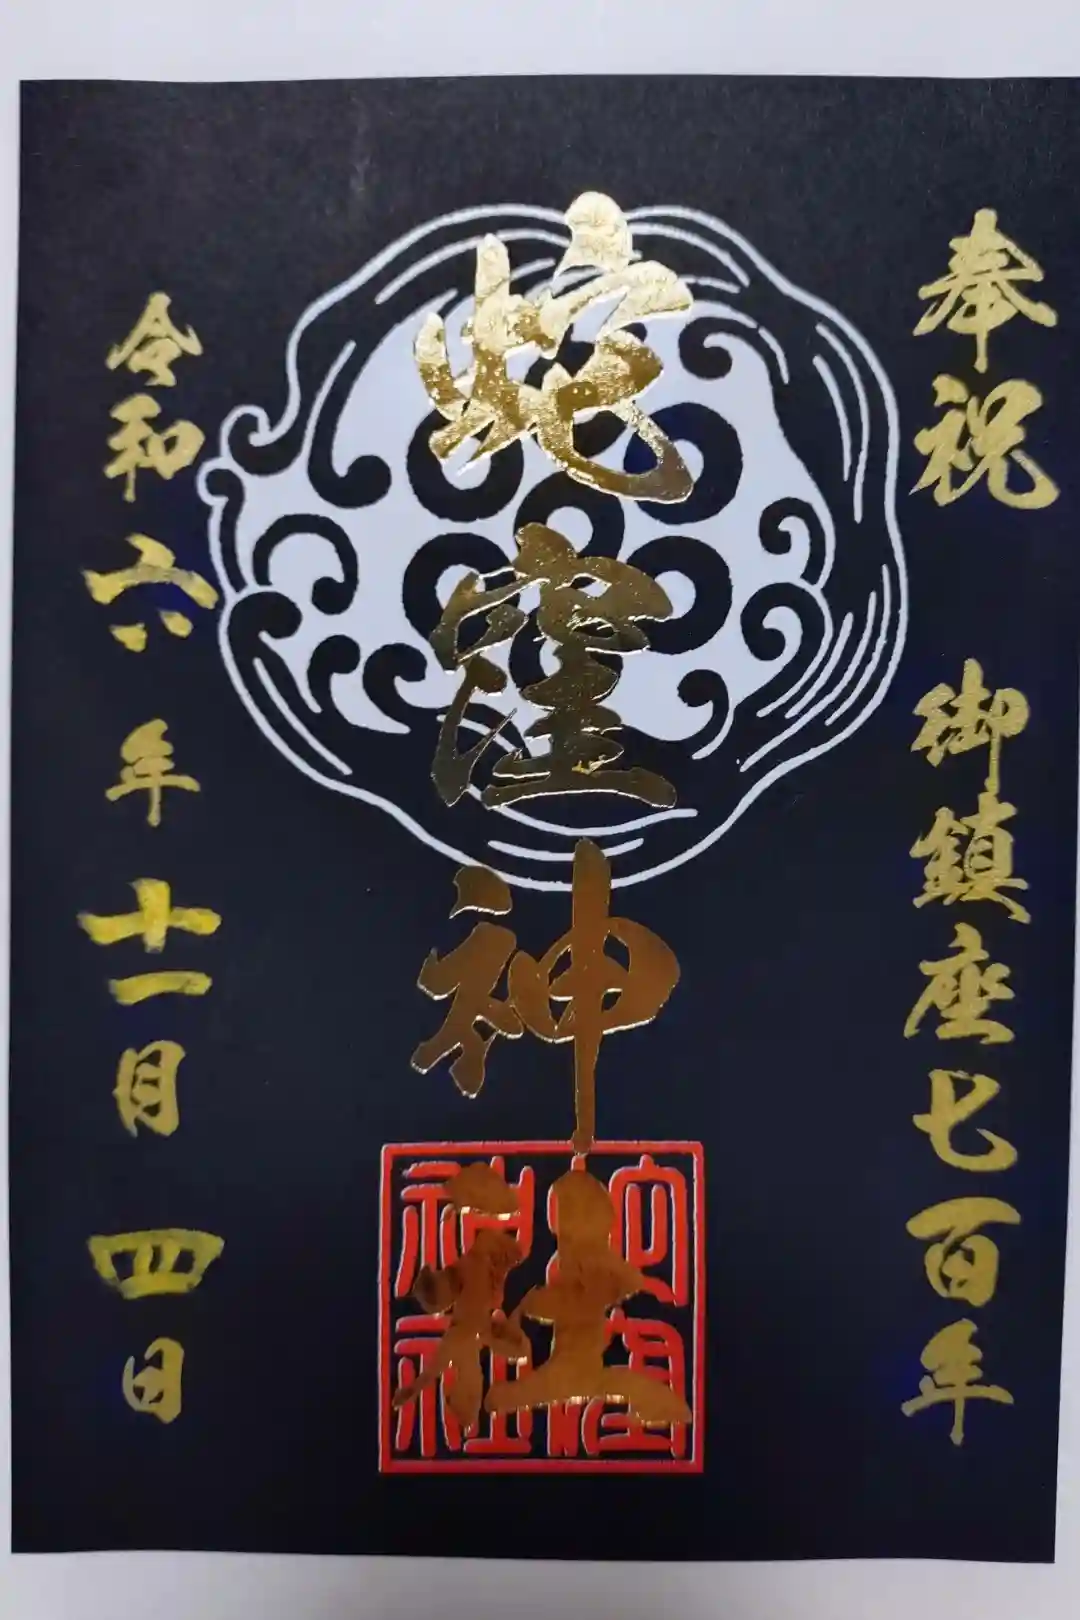 奉祝 御鎮座七百年
蛇窪神社
蛇窪神社
令和六年十一月四日